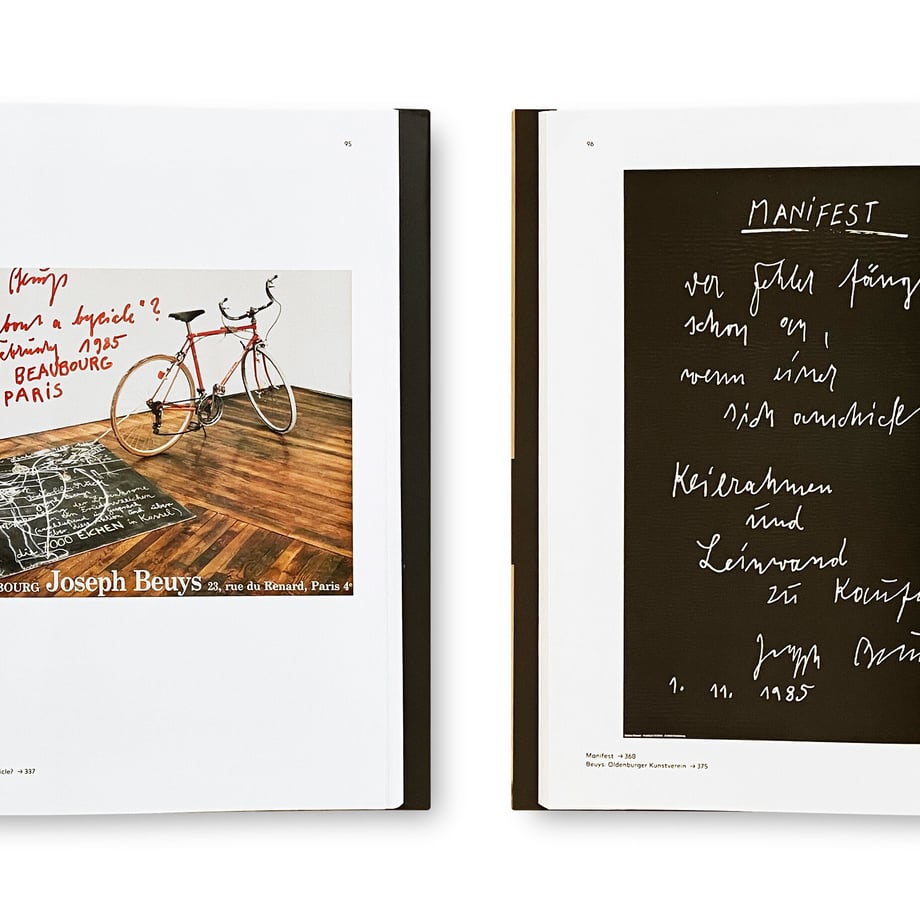 95
Beuys
bout a bycicle"?
ebruary 1985
BEAUBOURG
PARIS
7000 EICHEN in Kassel)
BOURG Joseph Beuys 23, rue du Renard, Paris 4e
icle? → 337
96
MANIFEST
der Fehler fäng
schon an,
wenn einer
sich anschick
Keilrahmen
und
Leinwand
zu Kaufe
Joseph Beu
1. 11. 1985
Manifest → 368
Beuys: Oldenburger Kunstverein → 375